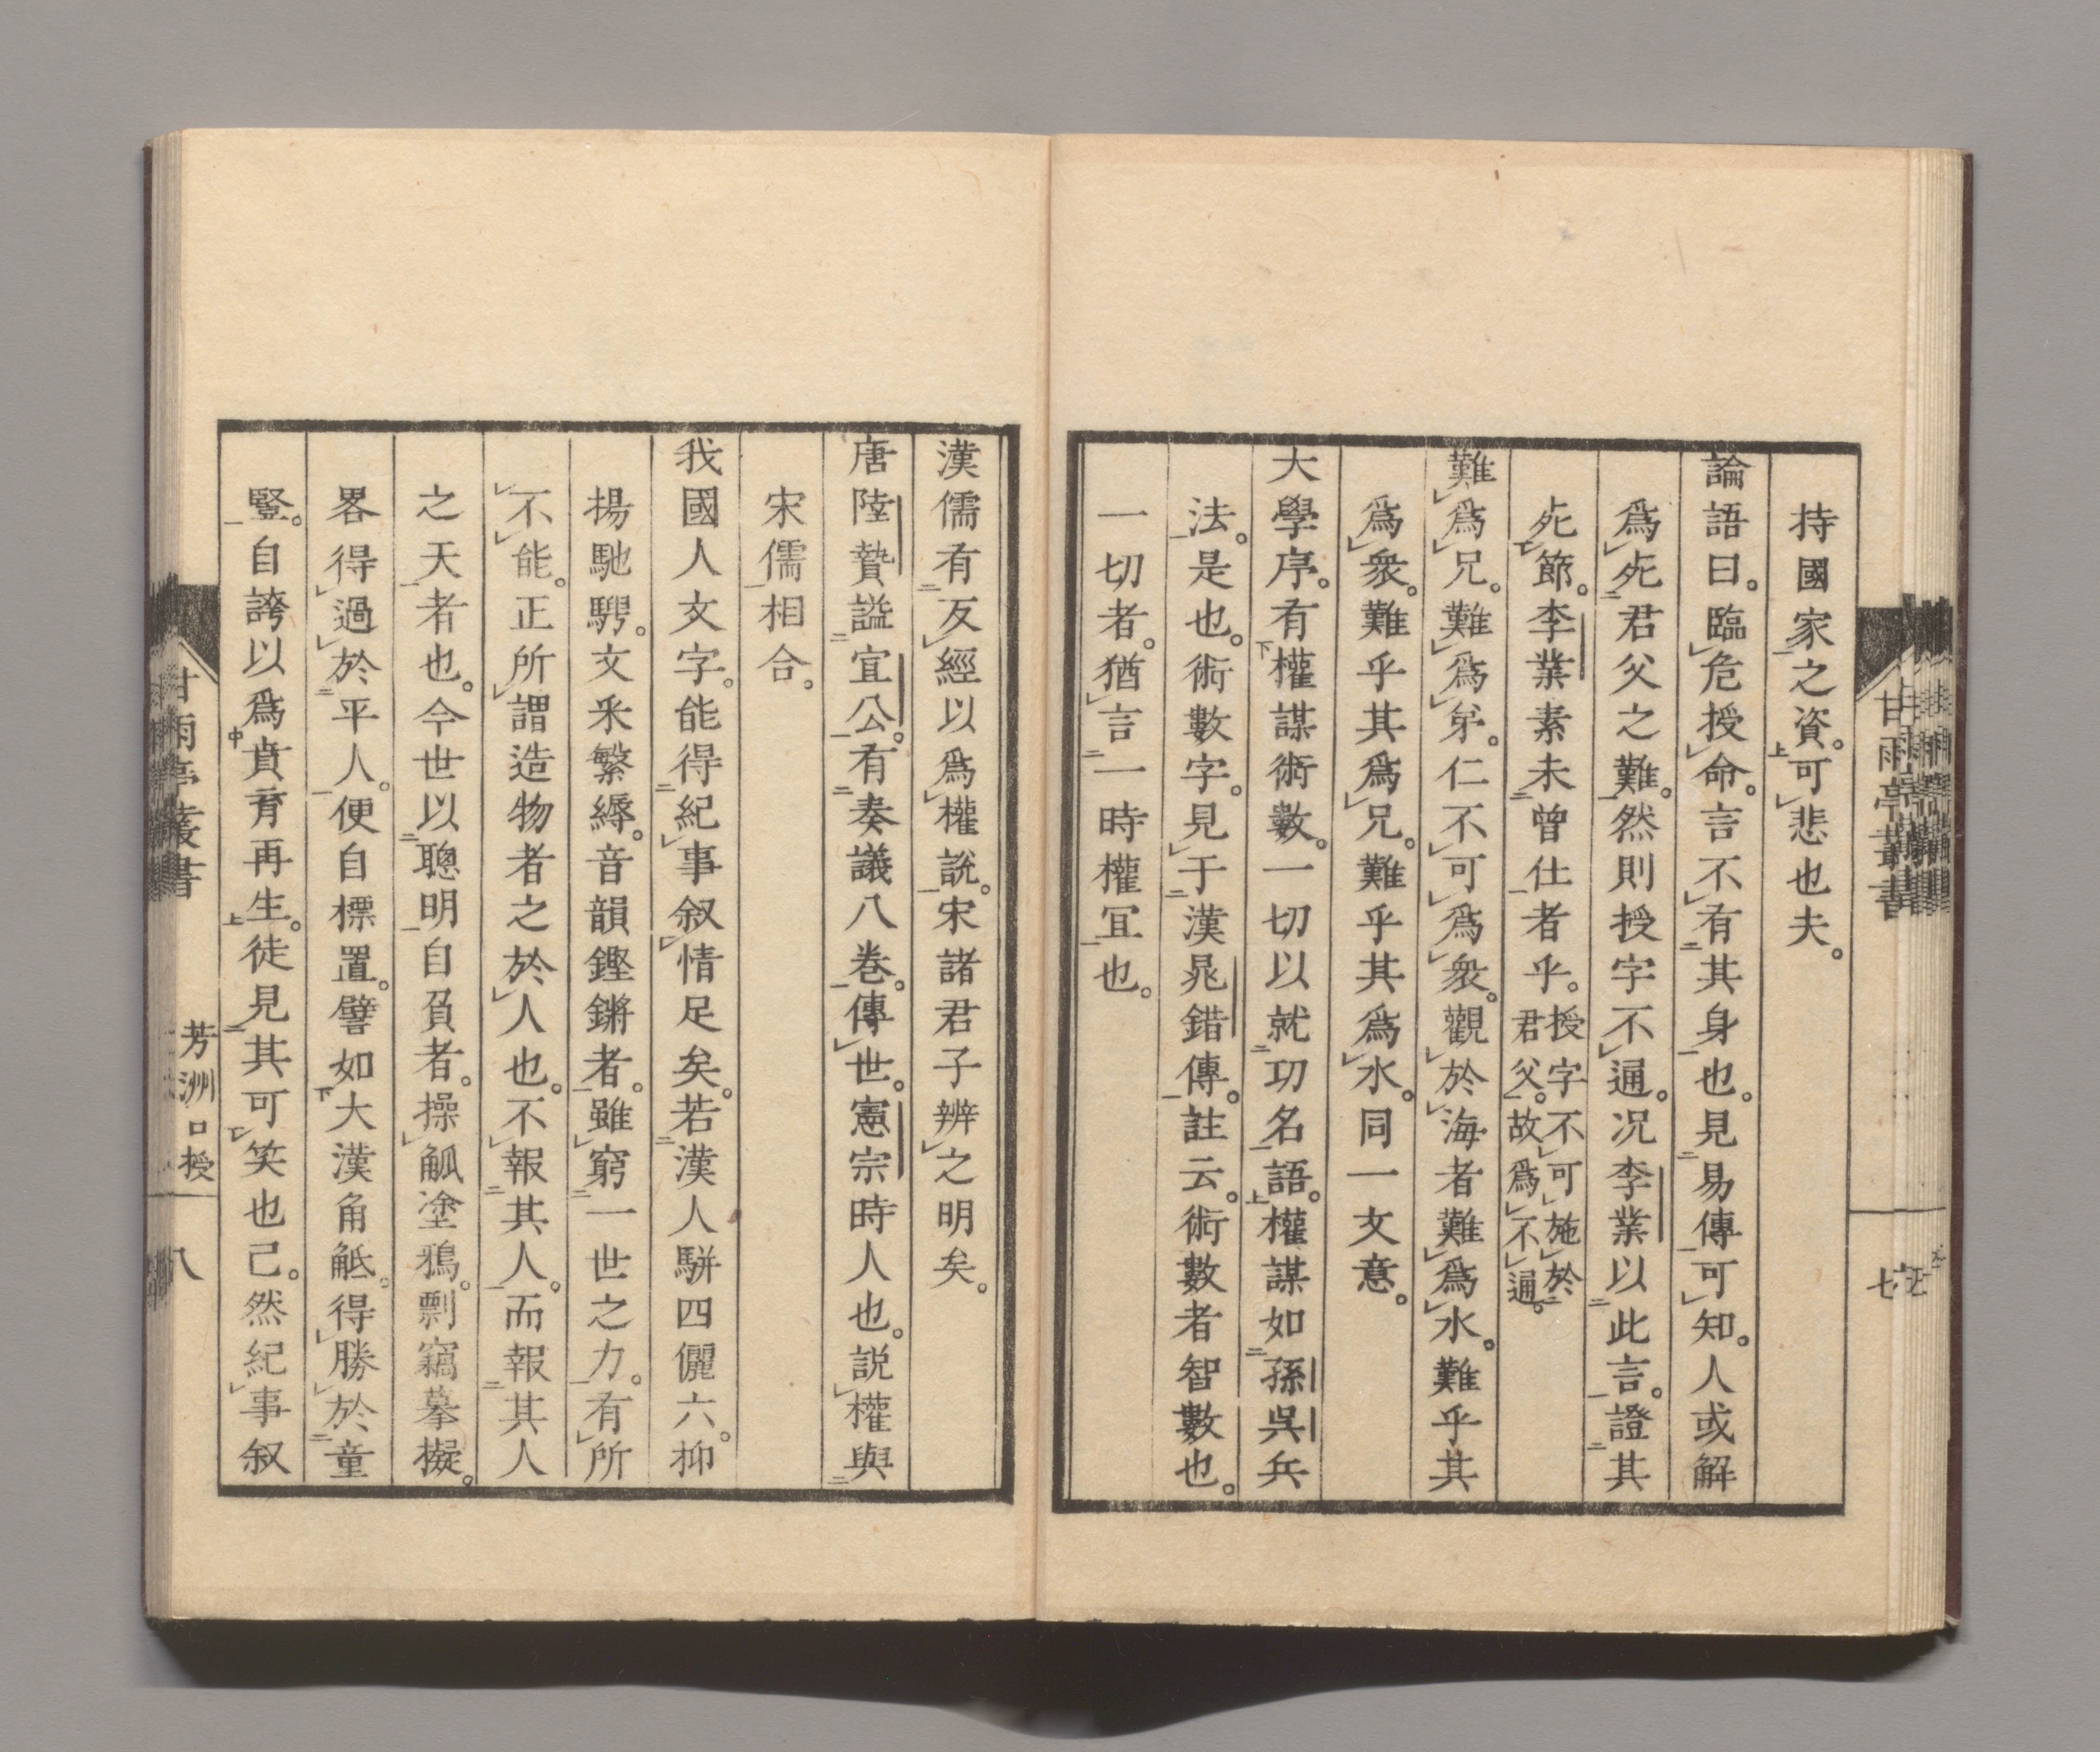 持國家之資。可悲也夫。
論語曰。臨危授命。言不有其身也。見易傳可知。人或解
爲死君父之難。然則授字不通。况李業以此言。證其
死節。李業素未曾仕者乎。授字不可施於君父。故爲不通。
難爲兄。難爲弟。仁不可爲衆。觀於海者難爲水。難乎其
爲衆。難乎其爲兄。難乎其爲水。同一文意。
大學序。有權謀術數。一切以就功名語。權謀如孫吳兵
法。是也。術數字。見于漢鼂錯傳。註云。術數者智數也。
一切者。猶言一時權宜也。
甘雨亭叢書
七
漢儒有反經以爲權說。宋諸君子辨之明矣。
唐陸贄謚宜公。有奏議八卷。傳世。憲宗時人也。説權與
宋儒相合。
我國人文字。能得紀事叙情足矣。若漢人駢四儷六。抑
揚馳騁。文采繁縟。音韻鏗鏘者。雖窮一世之力。有所
不能。正所謂造物者之於人也。不報其人。而報其人
之天者也。今世以聰明自負者。操觚塗鴉。剽竊摹擬。
畧得過於平人。便自標置。譬如大漢角觝。得勝於童
豎。自誇以爲賁育再生。徒見其可笑也已。然紀事叙
甘雨亭叢書
芳洲口授
八